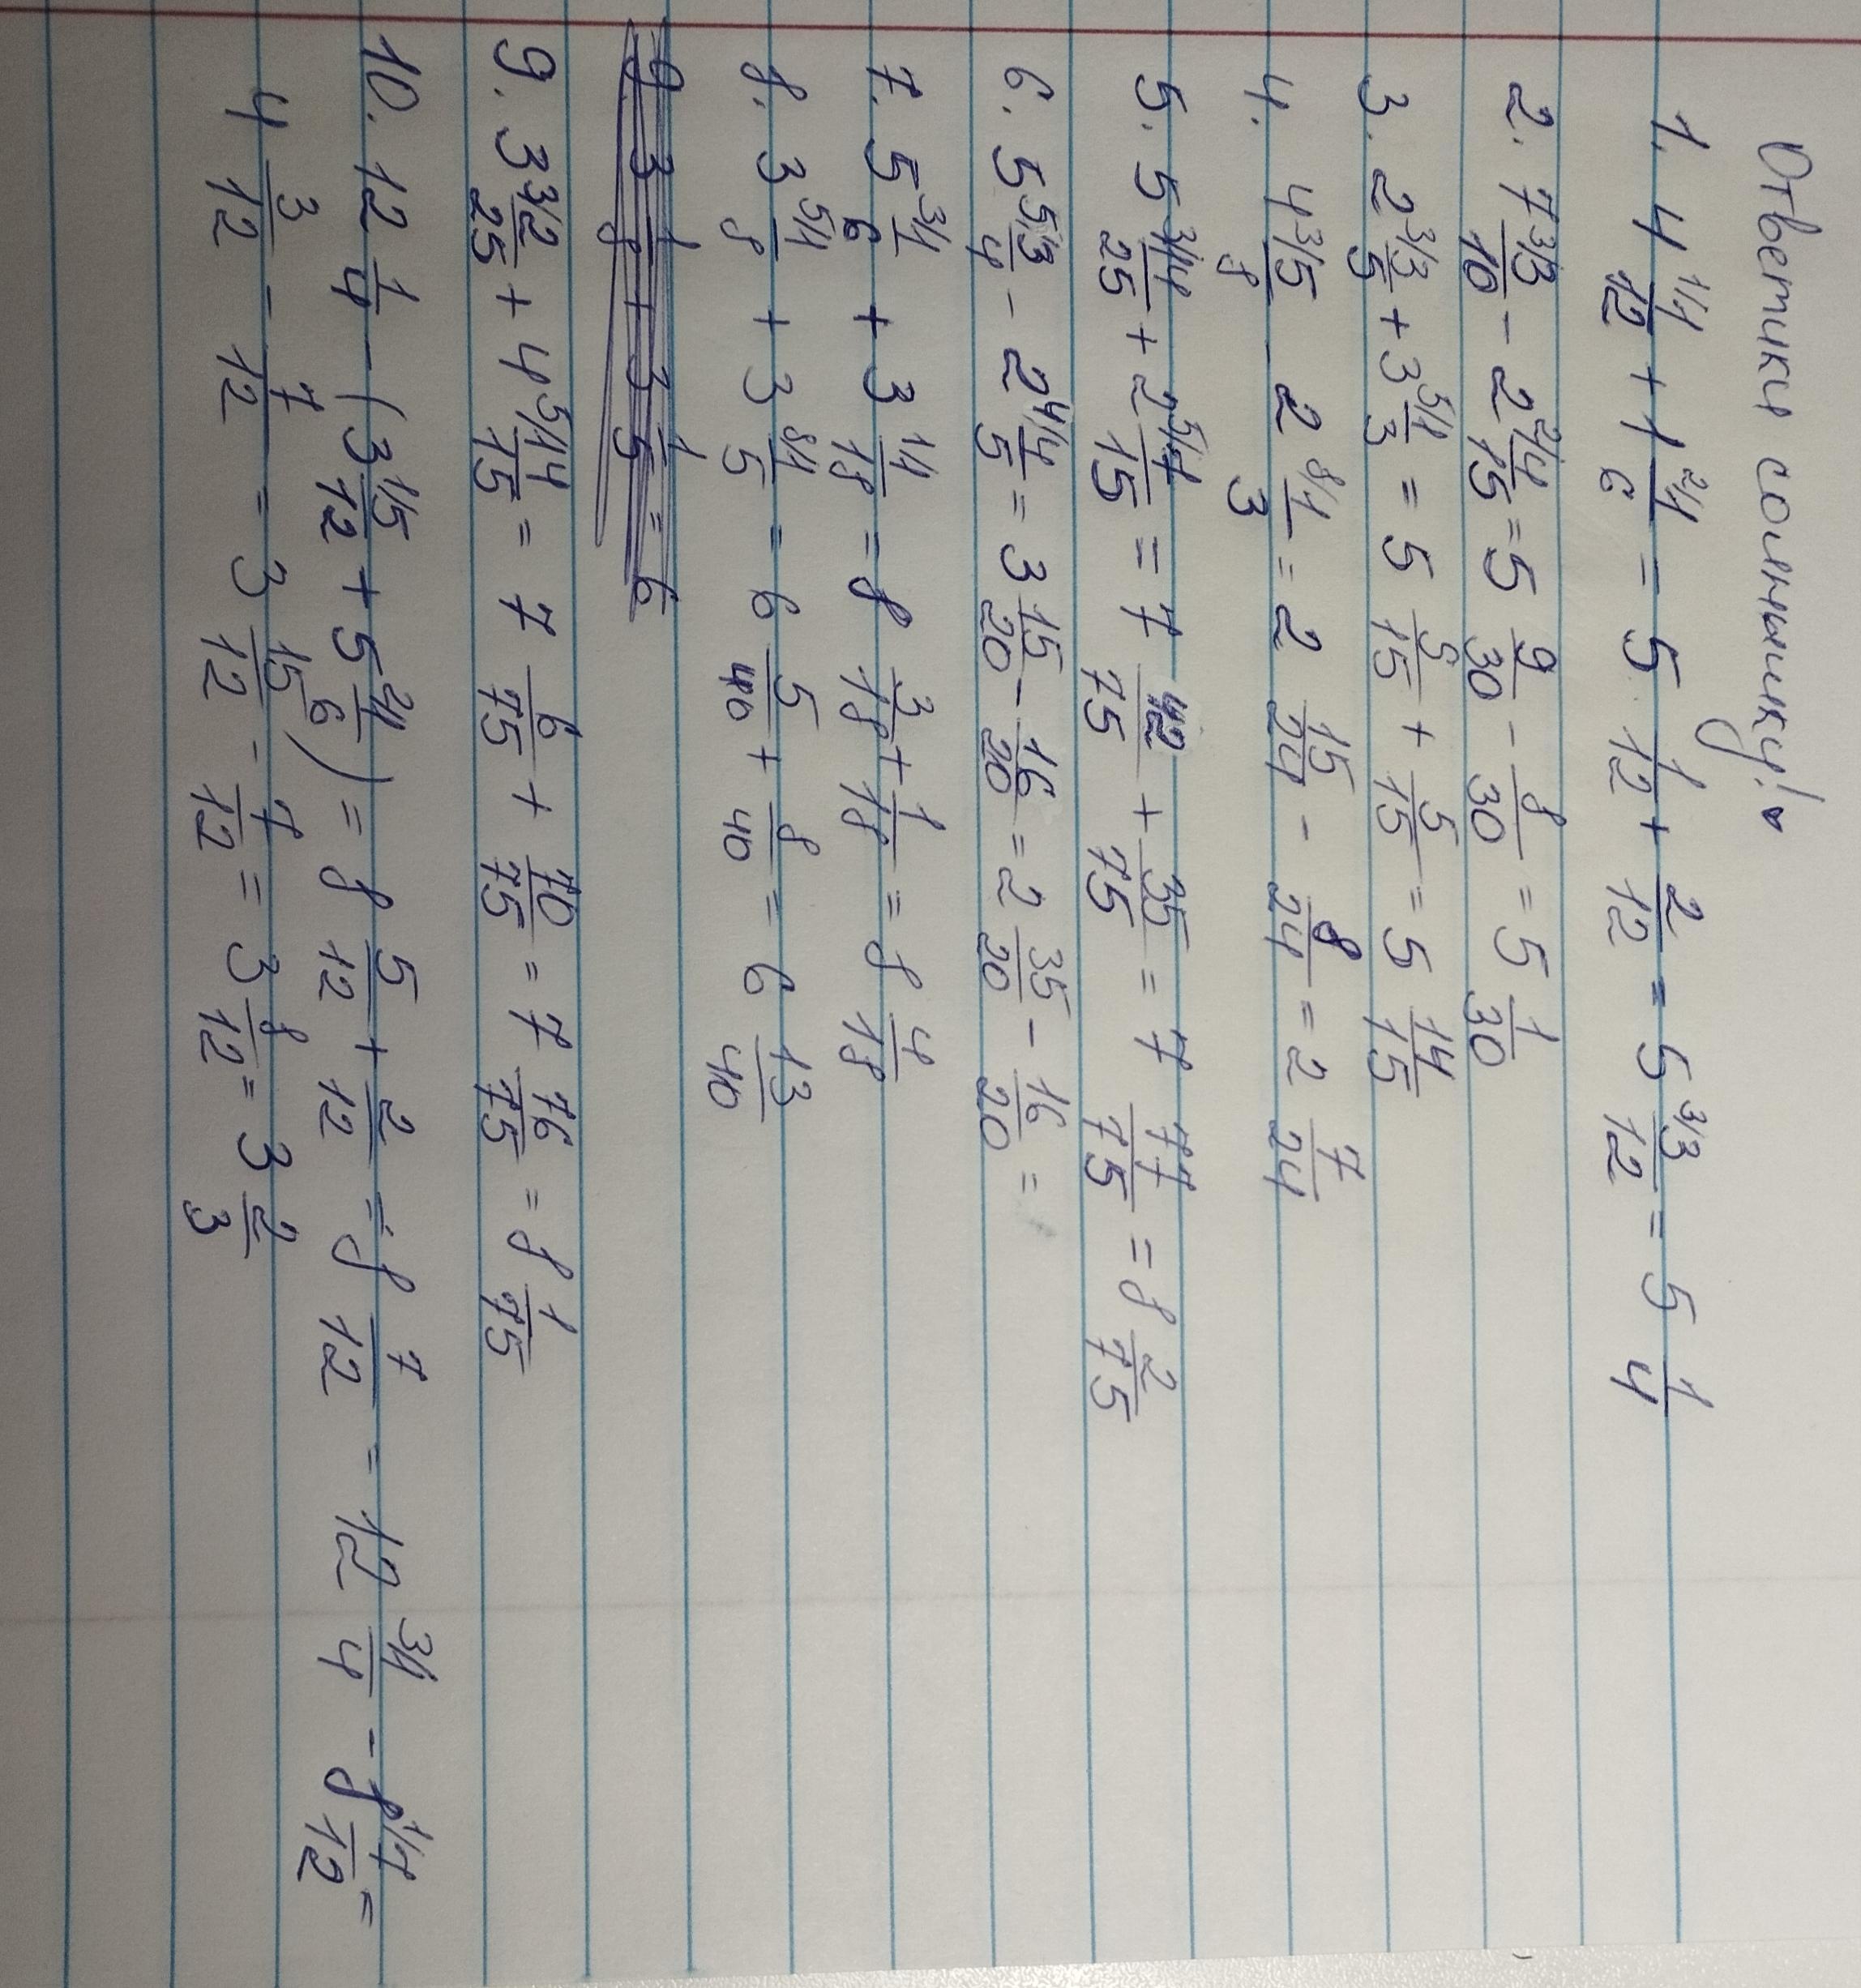 Ответики солнышку!♥
1. 4 ¹⁄1/12 + 1 ²⁄1/6 = 5 1/12 + 2/12 = 5 ³⁄3/12 = 5 1/4
2. 7 ³⁄3/10 - 2 ²⁄4/15 = 5 9/30 - 8/30 = 5 1/30
3. 2 ³⁄3/5 + 3 ⁵⁄1/3 = 5 9/15 + 5/15 = 5 14/15
4. 4 ³⁄5/8 - 2 ⁸⁄1/3 = 2 15/24 - 8/24 = 2 7/24
5. 5 ³⁄14/25 + 2 ⁵⁄7/15 = 7 42/75 + 35/75 = 7 77/75 = 8 2/75
6. 5 ⁵⁄3/4 - 2 ⁴⁄4/5 = 3 15/20 - 16/20 = 2 35/20 - 16/20 =
7. 5 ³⁄1/6 + 3 ¹⁄1/18 = 8 3/18 + 1/18 = 8 4/18
8. 3 ⁵⁄1/8 + 3 ⁸⁄1/5 = 6 5/40 + 8/40 = 6 13/40
9. 3 1/8 + 3 1/5 = 6
9. 3 ³⁄2/25 + 4 ⁵⁄14/15 = 7 6/75 + 70/75 = 7 76/75 = 8 1/75
10. 12 1/4 - (3 ¹⁄5/12 + 5 ²⁄1/6) = 8 5/12 + 2/12 = 8 7/12 = 12 ³⁄1/4 - 8 ¹⁄7/12 =
4 3/12 - 7/12 = 3 15/12 - 7/12 = 3 8/12 = 3 2/3